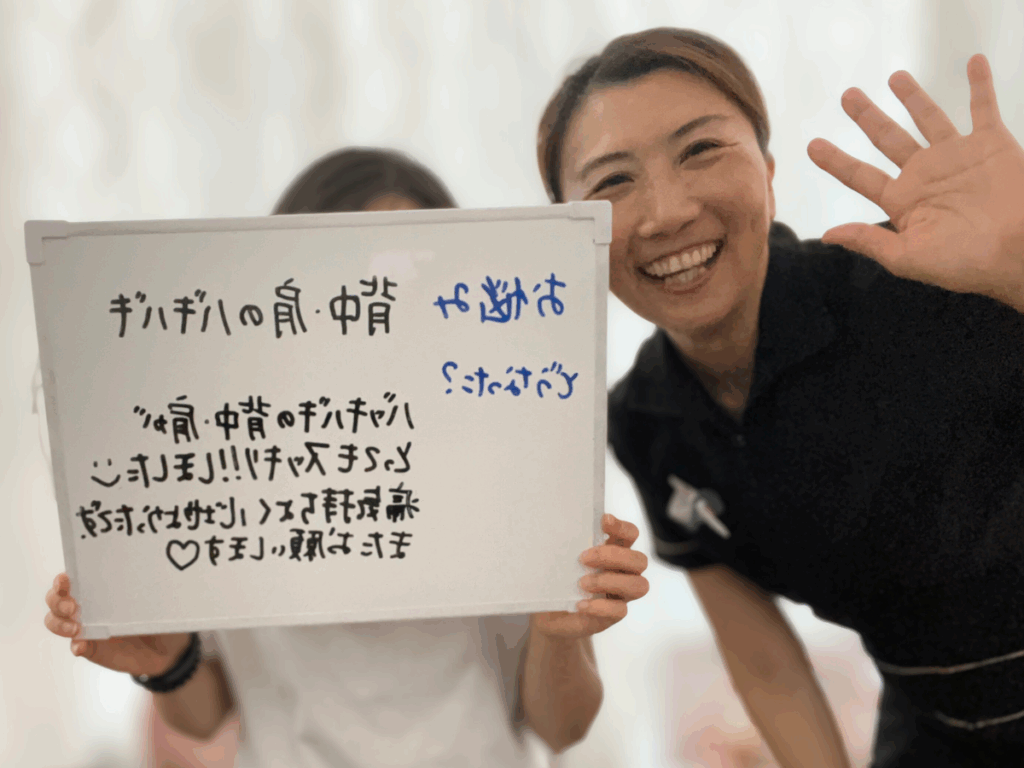 お悩み
背中・肩のバキバキ
どうなった？
バッキバキの背中・肩が
とってもスッキリ!!しました
痛気持ちよく心地よかったです.
またお願いします♡